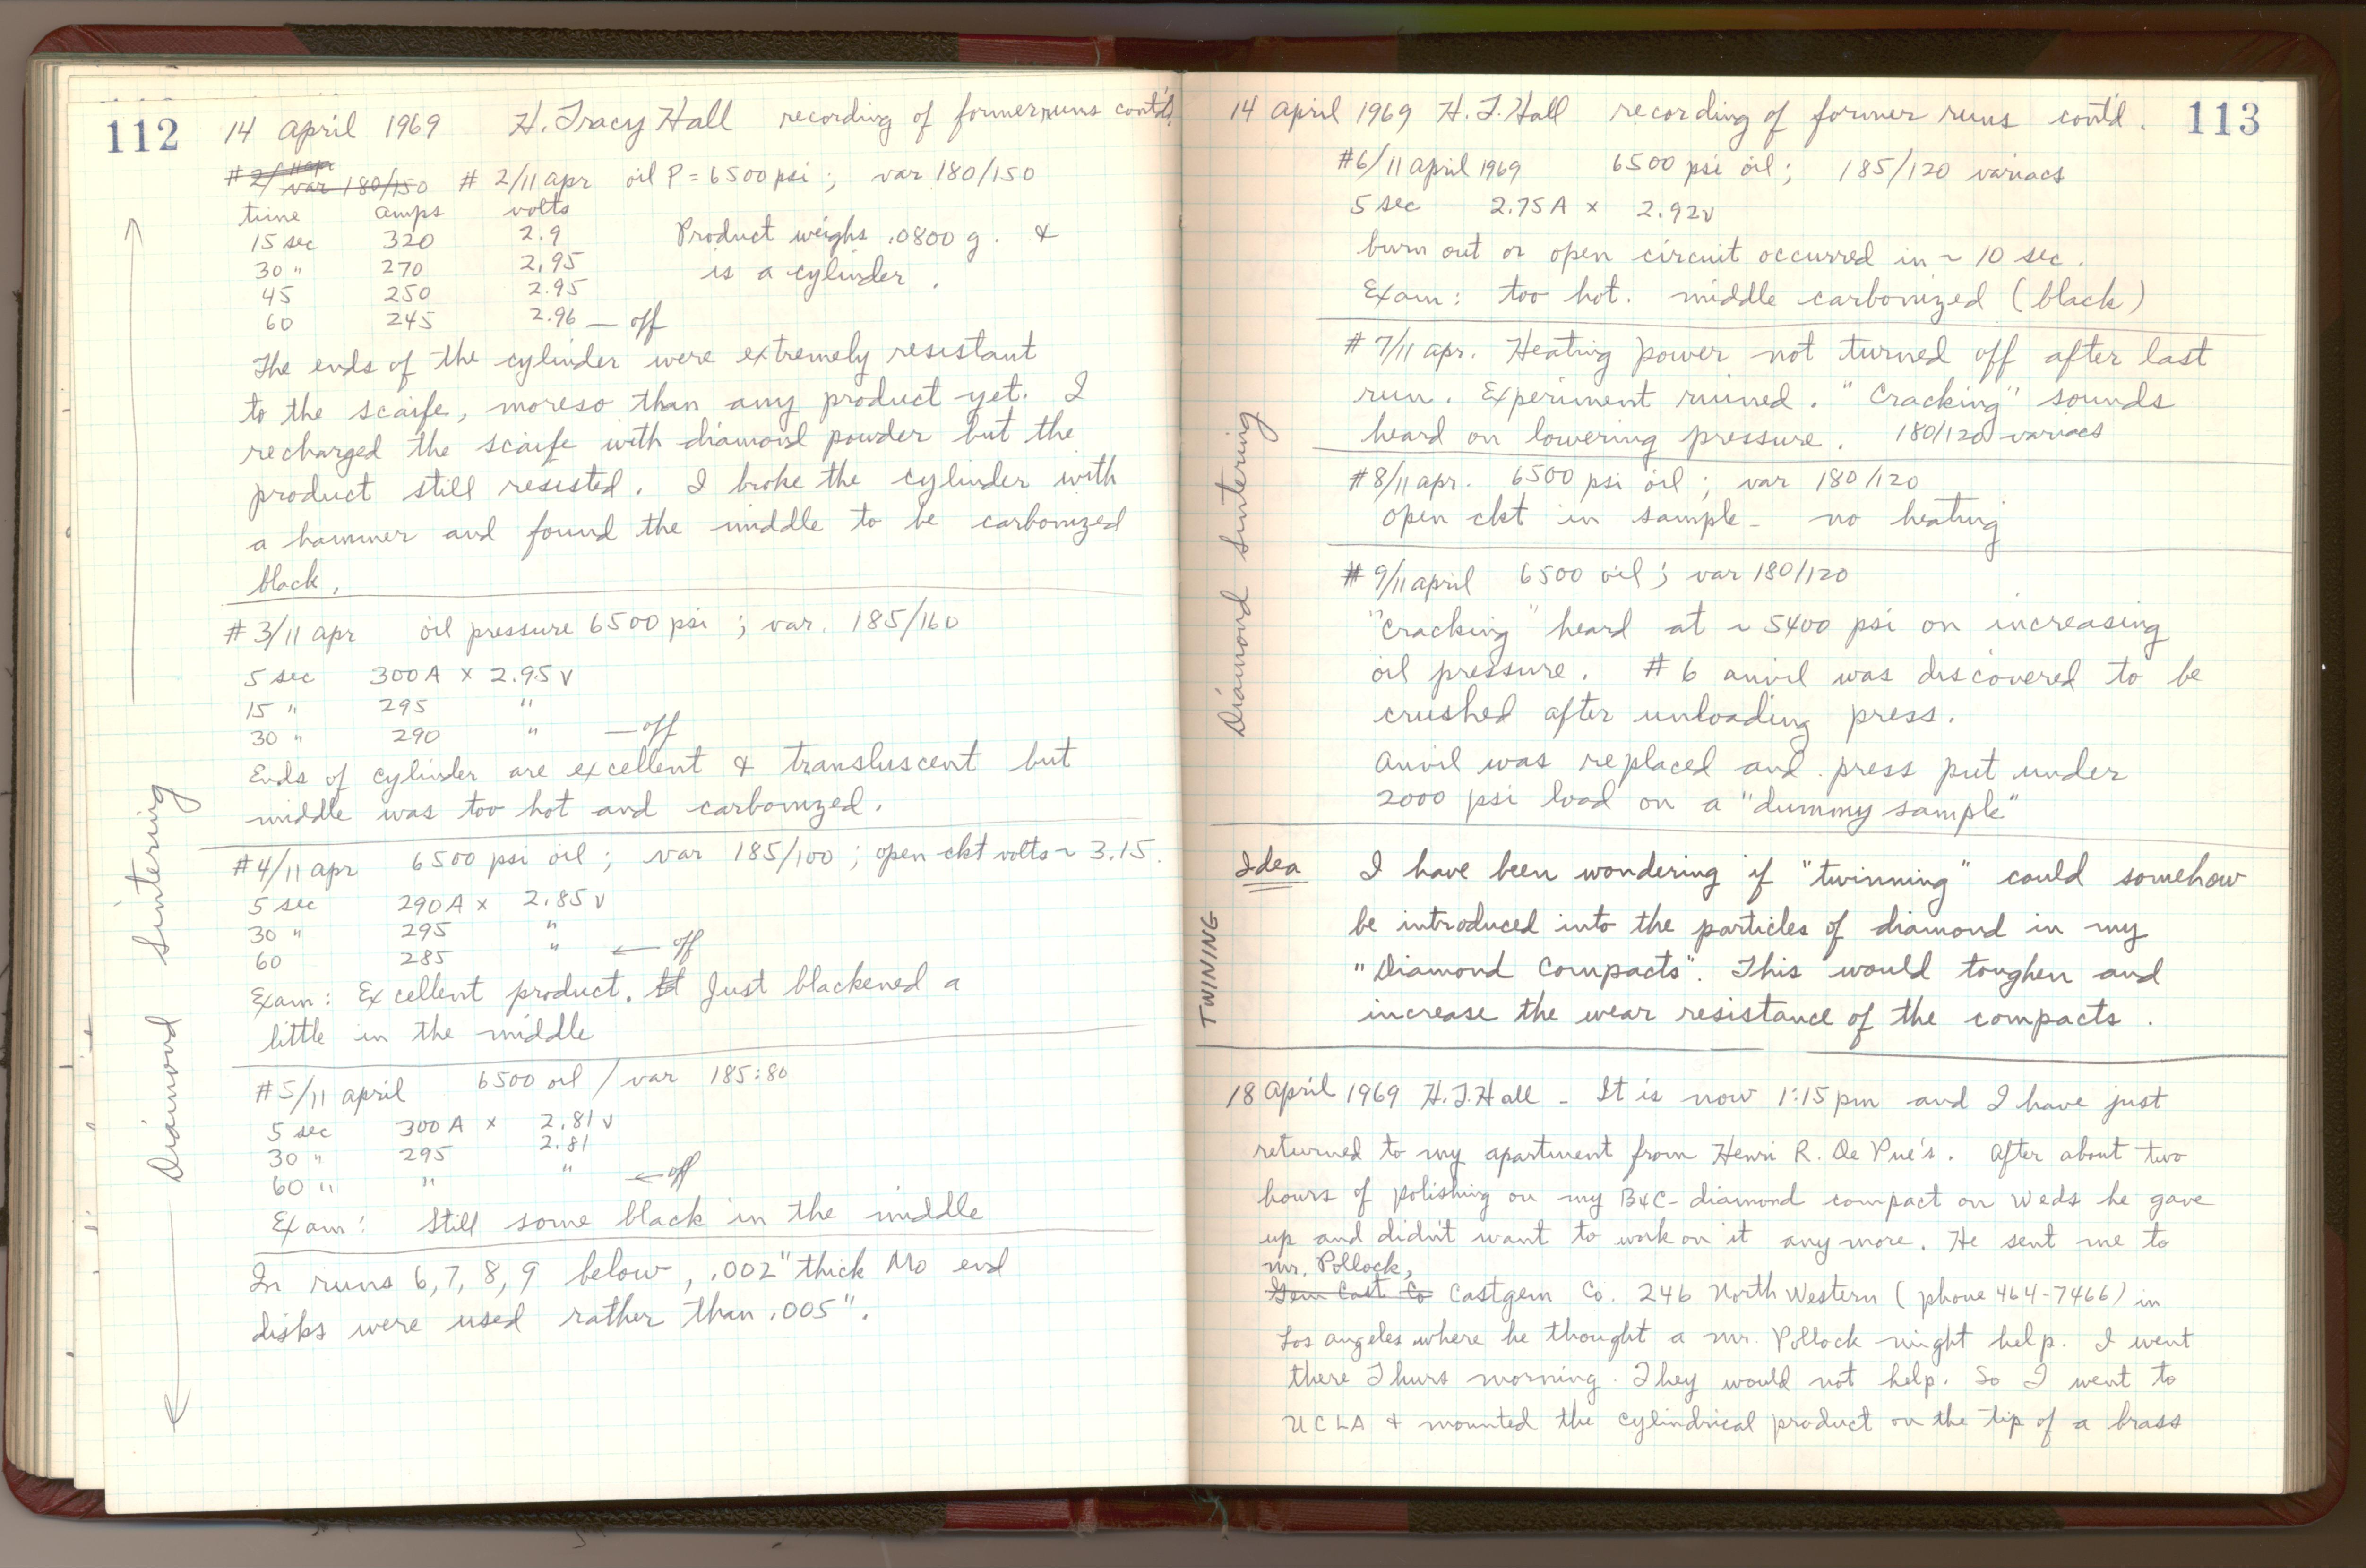 112
14 April 1969 H. Tracy Hall recording of former runs cont'd.
# 2/11 apr
var 180/150 # 2/11 apr oil P = 6500 psi ; var 180/150
time amps volts
15 sec 320 2.9 Product weighs .0800 g. &
30 " 270 2.95 is a cylinder.
45 250 2.95
60 245 2.96 — off
The ends of the cylinder were extremely resistant
to the scaife, moreso than any product yet. I
recharged the scaife with diamond powder but the
product still resisted. I broke the cylinder with
a hammer and found the middle to be carbonized
black.
# 3/11 apr oil pressure 6500 psi ; var. 185/160
5 sec 300 A x 2.95 v
15 " 295 "
30 " 290 " — off
Ends of cylinder are excellent & transluscent but
middle was too hot and carbonized.
# 4/11 apr 6500 psi oil ; var 185/100 ; open ckt volts ~ 3.15.
5 sec 290 A x 2.85 v
30 " 295 "
60 285 " ← off
Exam: Excellent product. Just blackened a
little in the middle
# 5/11 april 6500 oil / var 185:80
5 sec 300 A x 2.81 v
30 " 295 2.81
60 " " " ← off
Exam: Still some black in the middle
In runs 6, 7, 8, 9 below, .002" thick Mo end
disks were used rather than .005".
Diamond Sintering
14 April 1969 H. T. Hall recording of former runs cont'd. 113
# 6/11 april 1969 6500 psi oil ; 185/120 variacs
5 sec 2.75 A x 2.92v
burn out or open circuit occurred in ~ 10 sec.
Exam: too hot. middle carbonized (black)
# 7/11 apr. Heating power not turned off after last
run. Experiment ruined. "Cracking" sounds
heard on lowering pressure. 180/120 variacs
# 8/11 apr. 6500 psi oil ; var 180/120
open ckt in sample - no heating
# 9/11 april 6500 oil ; var 180/120
"Cracking" heard at ~ 5400 psi on increasing
oil pressure. # 6 anvil was discovered to be
crushed after unloading press.
Anvil was replaced and press put under
2000 psi load on a "dummy sample"
Diamond Sintering
Idea I have been wondering if "twinning" could somehow
be introduced into the particles of diamond in my
"Diamond Compacts". This would toughen and
increase the wear resistance of the compacts.
TWINING
18 April 1969 H. T. Hall - It is now 1:15 pm and I have just
returned to my apartment from Henri R. De Pue's. After about two
hours of polishing on my B4C-diamond compact on Weds he gave
up and didn't want to work on it any more. He sent me to
Mr. Pollock,
Gem Cast Co Castgem Co. 246 North Western (phone 464-7466) in
Los Angeles where he thought a Mr. Pollock might help. I went
there Thurs morning. They would not help. So I went to
UCLA & mounted the cylindrical product on the tip of a brass